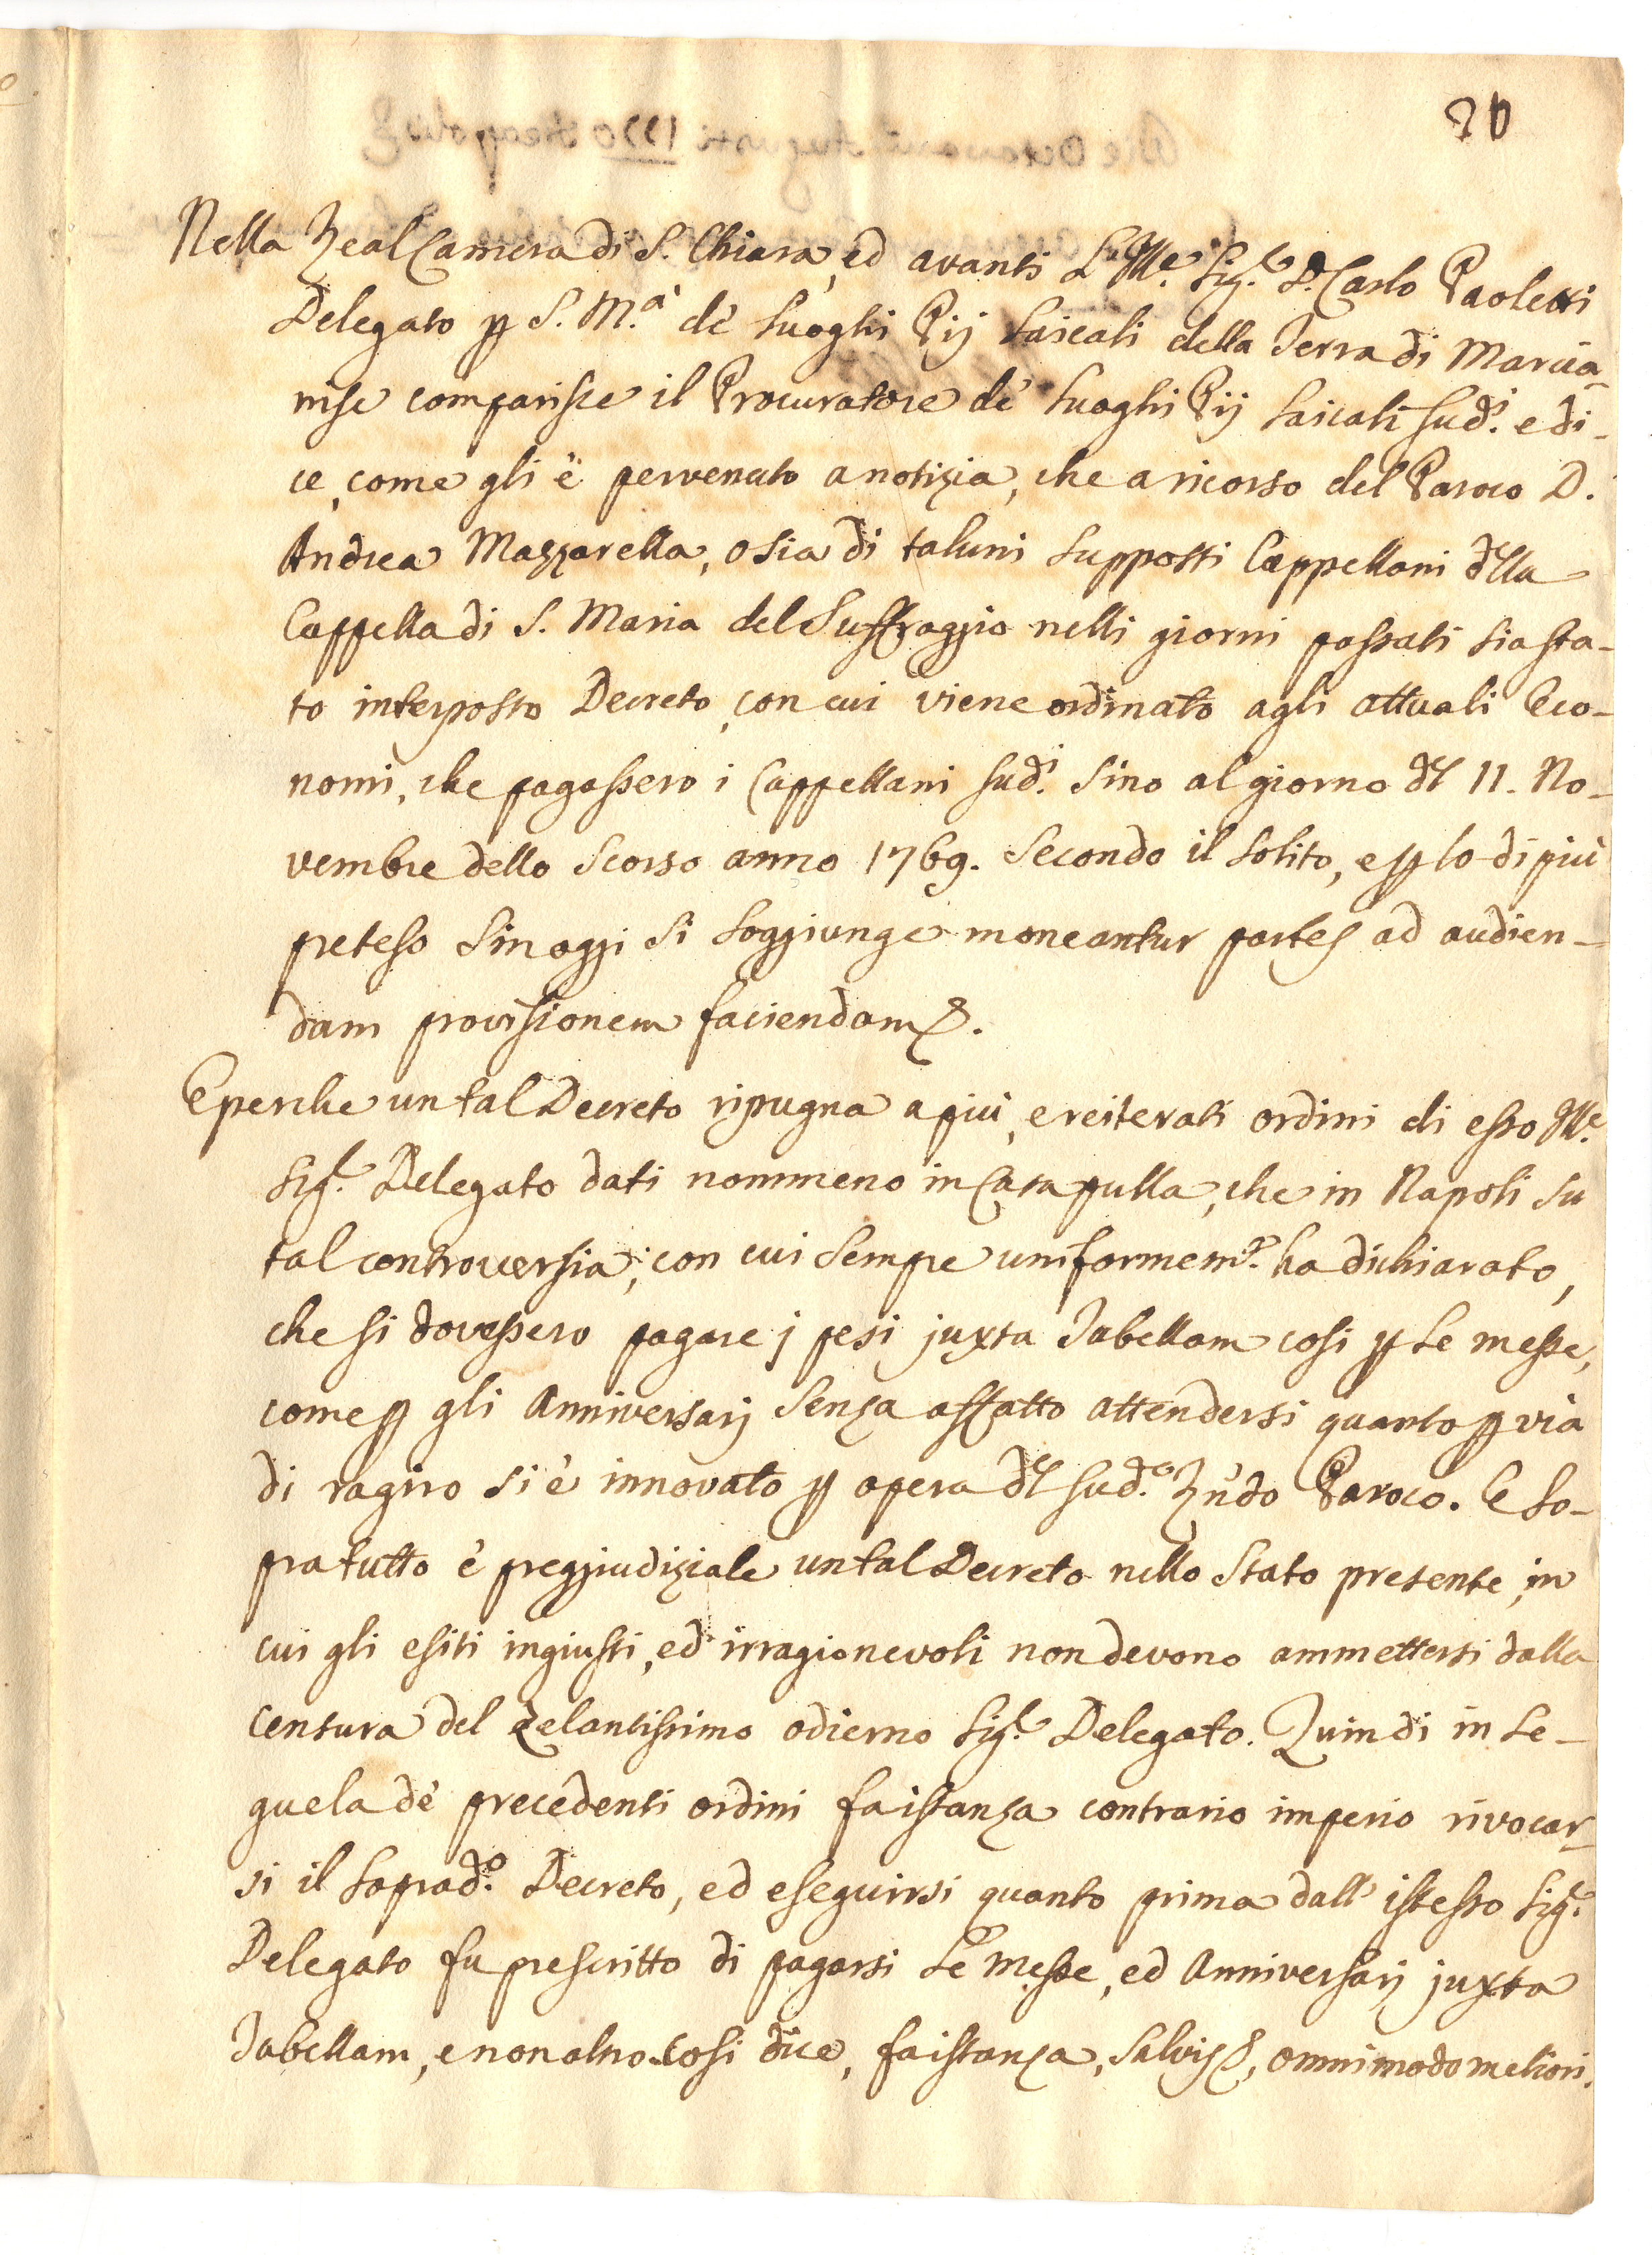 20
Nella Real Camera di S. Chiara, ed avanti L'Ill.e Sig.r D. Carlo Paoletti
Delegato p S. M.à de' Luoghi Pij Laicali della Terra di Marcia-
nise comparisce il Procuratore de' Luoghi Pij Laicali sud.i e di-
ce, come gli è pervenuto a notizia, che a ricorso del Paroco D.
Andrea Mazzarella, o sia di taluni supposti Cappellani dlla
Cappella di S. Maria del Suffraggio nelli giorni passati sia sta-
to interposto Decreto, con cui viene ordinato agli attuali Eco-
nomi, che pagassero i Cappellani sud.i sino al giorno dl 11. No-
vembre dello scorso anno 1769. secondo il solito, e p lo di più
preteso sin oggi si soggiunge moneantur partes ad audien-
dam provisionem faciendam &.
E perche un tal Decreto ripugna a più, e reiterati ordini di esso Ill.e
Sig.r Delegato dati nommeno in Casapulla, che in Napoli su
tal controversia; con cui sempre uniformem.e ha dichiarato,
che si dovessero pagare j pesi juxta Tabellam cosi p le messe,
come p gli Anniversarj senza affatto attendersi quanto p via
di ragiro si è innovato p opera dl sud.o Rñdo Paroco. E so-
pra tutto è preggiudiziale un tal Decreto nello stato presente, in
cui gli esiti ingiusti, ed irragionevoli non devono ammettersi dalla
censura del zelantissimo odierno Sig.r Delegato. Quindi in se-
guela de' precedenti ordini fa istanza contrario imperio rivocar-
si il soprad.o Decreto, ed eseguirsi quanto prima dall' istesso Sig.r
Delegato fu prescritto di pagarsi le messe, ed Anniversarj juxta
Tabellam, e non altro. Cosi dice, fa istanza, salvis &, omni modo meliori.